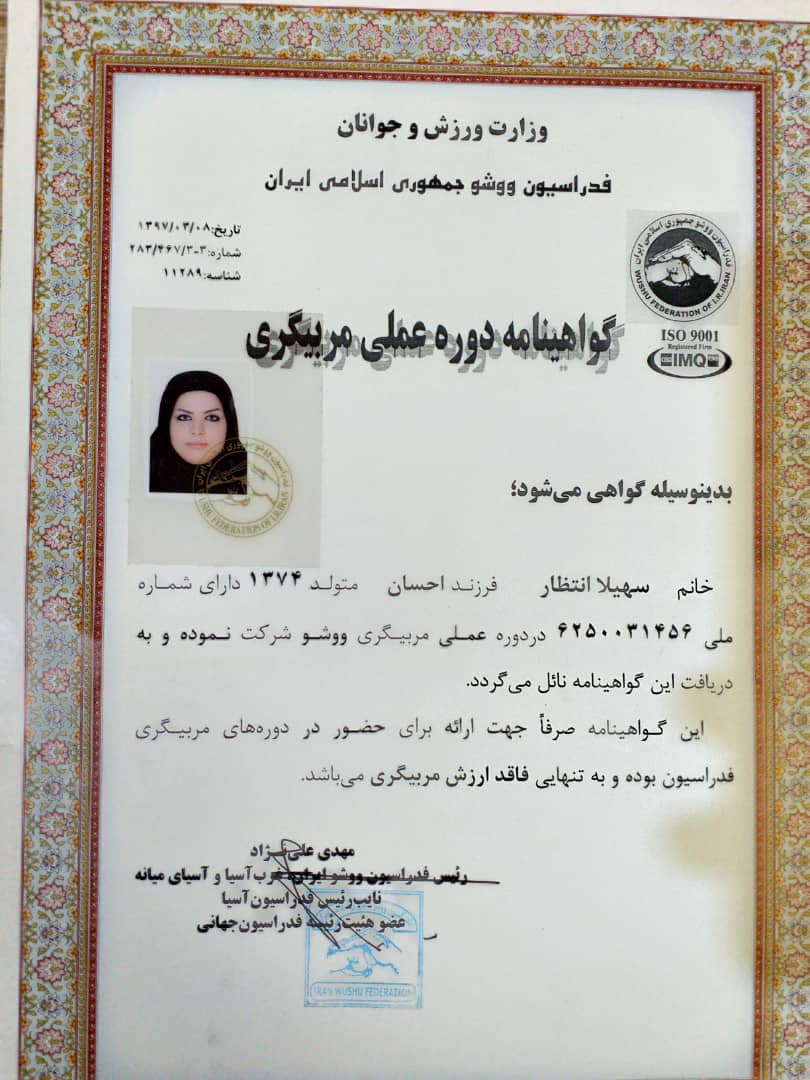 وزارت ورزش و جوانان
فدراسیون ووشو جمهوری اسلامی ایران
تاریخ:۱۳۹۷/۰۳/۰۸
شماره:۳-۲۸۳/۴۶۷/۳
شناسه:۱۱۲۸۹
فدراسیون ووشو جمهوری اسلامی ایران
WUSHU FEDERATION OF I.R.IRAN
ISO 9001
Registered Firm
IMQ
گواهینامه دوره عملی مربیگری
FEDERATION OF I.R.IRAN
بدینوسیله گواهی می‌شود؛
خانم سهیلا انتظار فرزند احسان متولد ۱۳۷۴ دارای شماره
ملی ۶۲۵۰۰۳۱۴۵۶ دردوره عملی مربیگری ووشو شرکت نموده و به
دریافت این گواهینامه نائل می‌گردد.
این گواهینامه صرفاً جهت ارائه برای حضور در دوره‌های مربیگری
فدراسیون بوده و به تنهایی فاقد ارزش مربیگری می‌باشد.
مهدی علی‌نژاد
رئیس فدراسیون ووشو ایران، غرب‌آسیا و آسیای میانه
نایب‌رئیس فدراسیون‌آسیا
عضو هئیت‌رئیسه فدراسیون‌جهانی
IRAN WUSHU FEDERATION